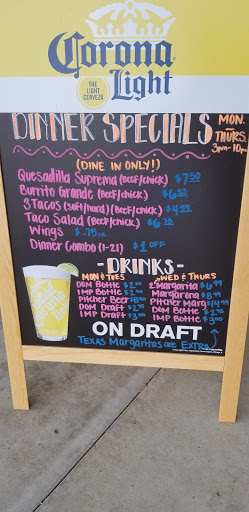 Corona
Light
THE
LIGHT
CERVEZA
DINNER SPECIALS
MON. -
THURS.
3pm-10pm
(DINE IN ONLY!)
Quesadilla Suprema (Beef/chick) $7.50
Burrito Grande (Beef/chick)
3 Tacos (soft/hard) (Beef/chick)
Taco Salad (Beef/chick)
Wings $ .75 ea.
Dinner Combo (1-21) $1 OFF
- DRINKS -
MON & TUES
DOM Bottle
IMP Bottle
Pitcher Beer
DOM Draft
IMP Draft
WED & THURS
Margarita
Margarona
Pitcher Marg
DOM Bottle
IMP Bottle
ON DRAFT
TEXAS Margaritas are EXTRA